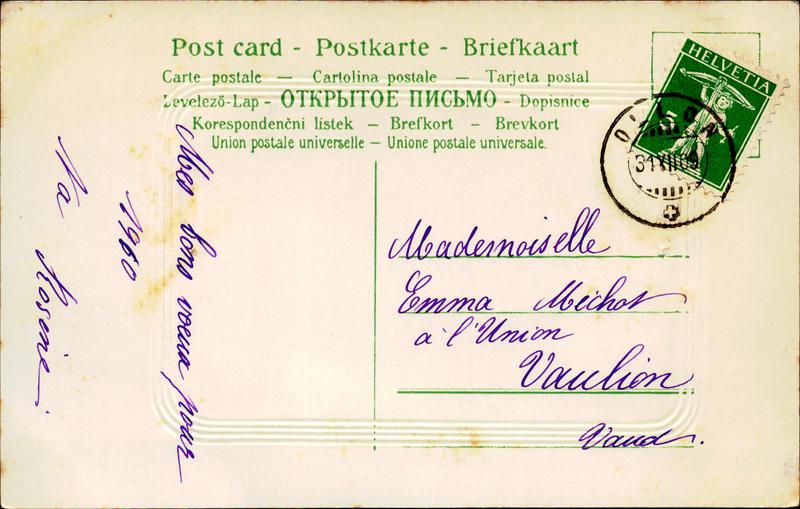 Post card - Postkarte - Briefkaart
Carte postale — Cartolina postale — Tarjeta postal
Levelező-Lap - ОТКРЫТОЕ ПИСЬМО - Dopisnice
Korespondenční lístek — Brefkort — Brevkort
Union postale universelle — Unione postale universale.
HELVETIA
5
31 XII 09
Mademoiselle
Emma Michot
à l'Union
Vaulion
Vaud.
Mes bons voeux pour
1910
Ta Rosine.